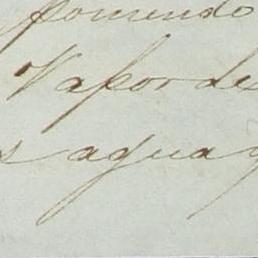 pomendo
Vapor de
s aguas